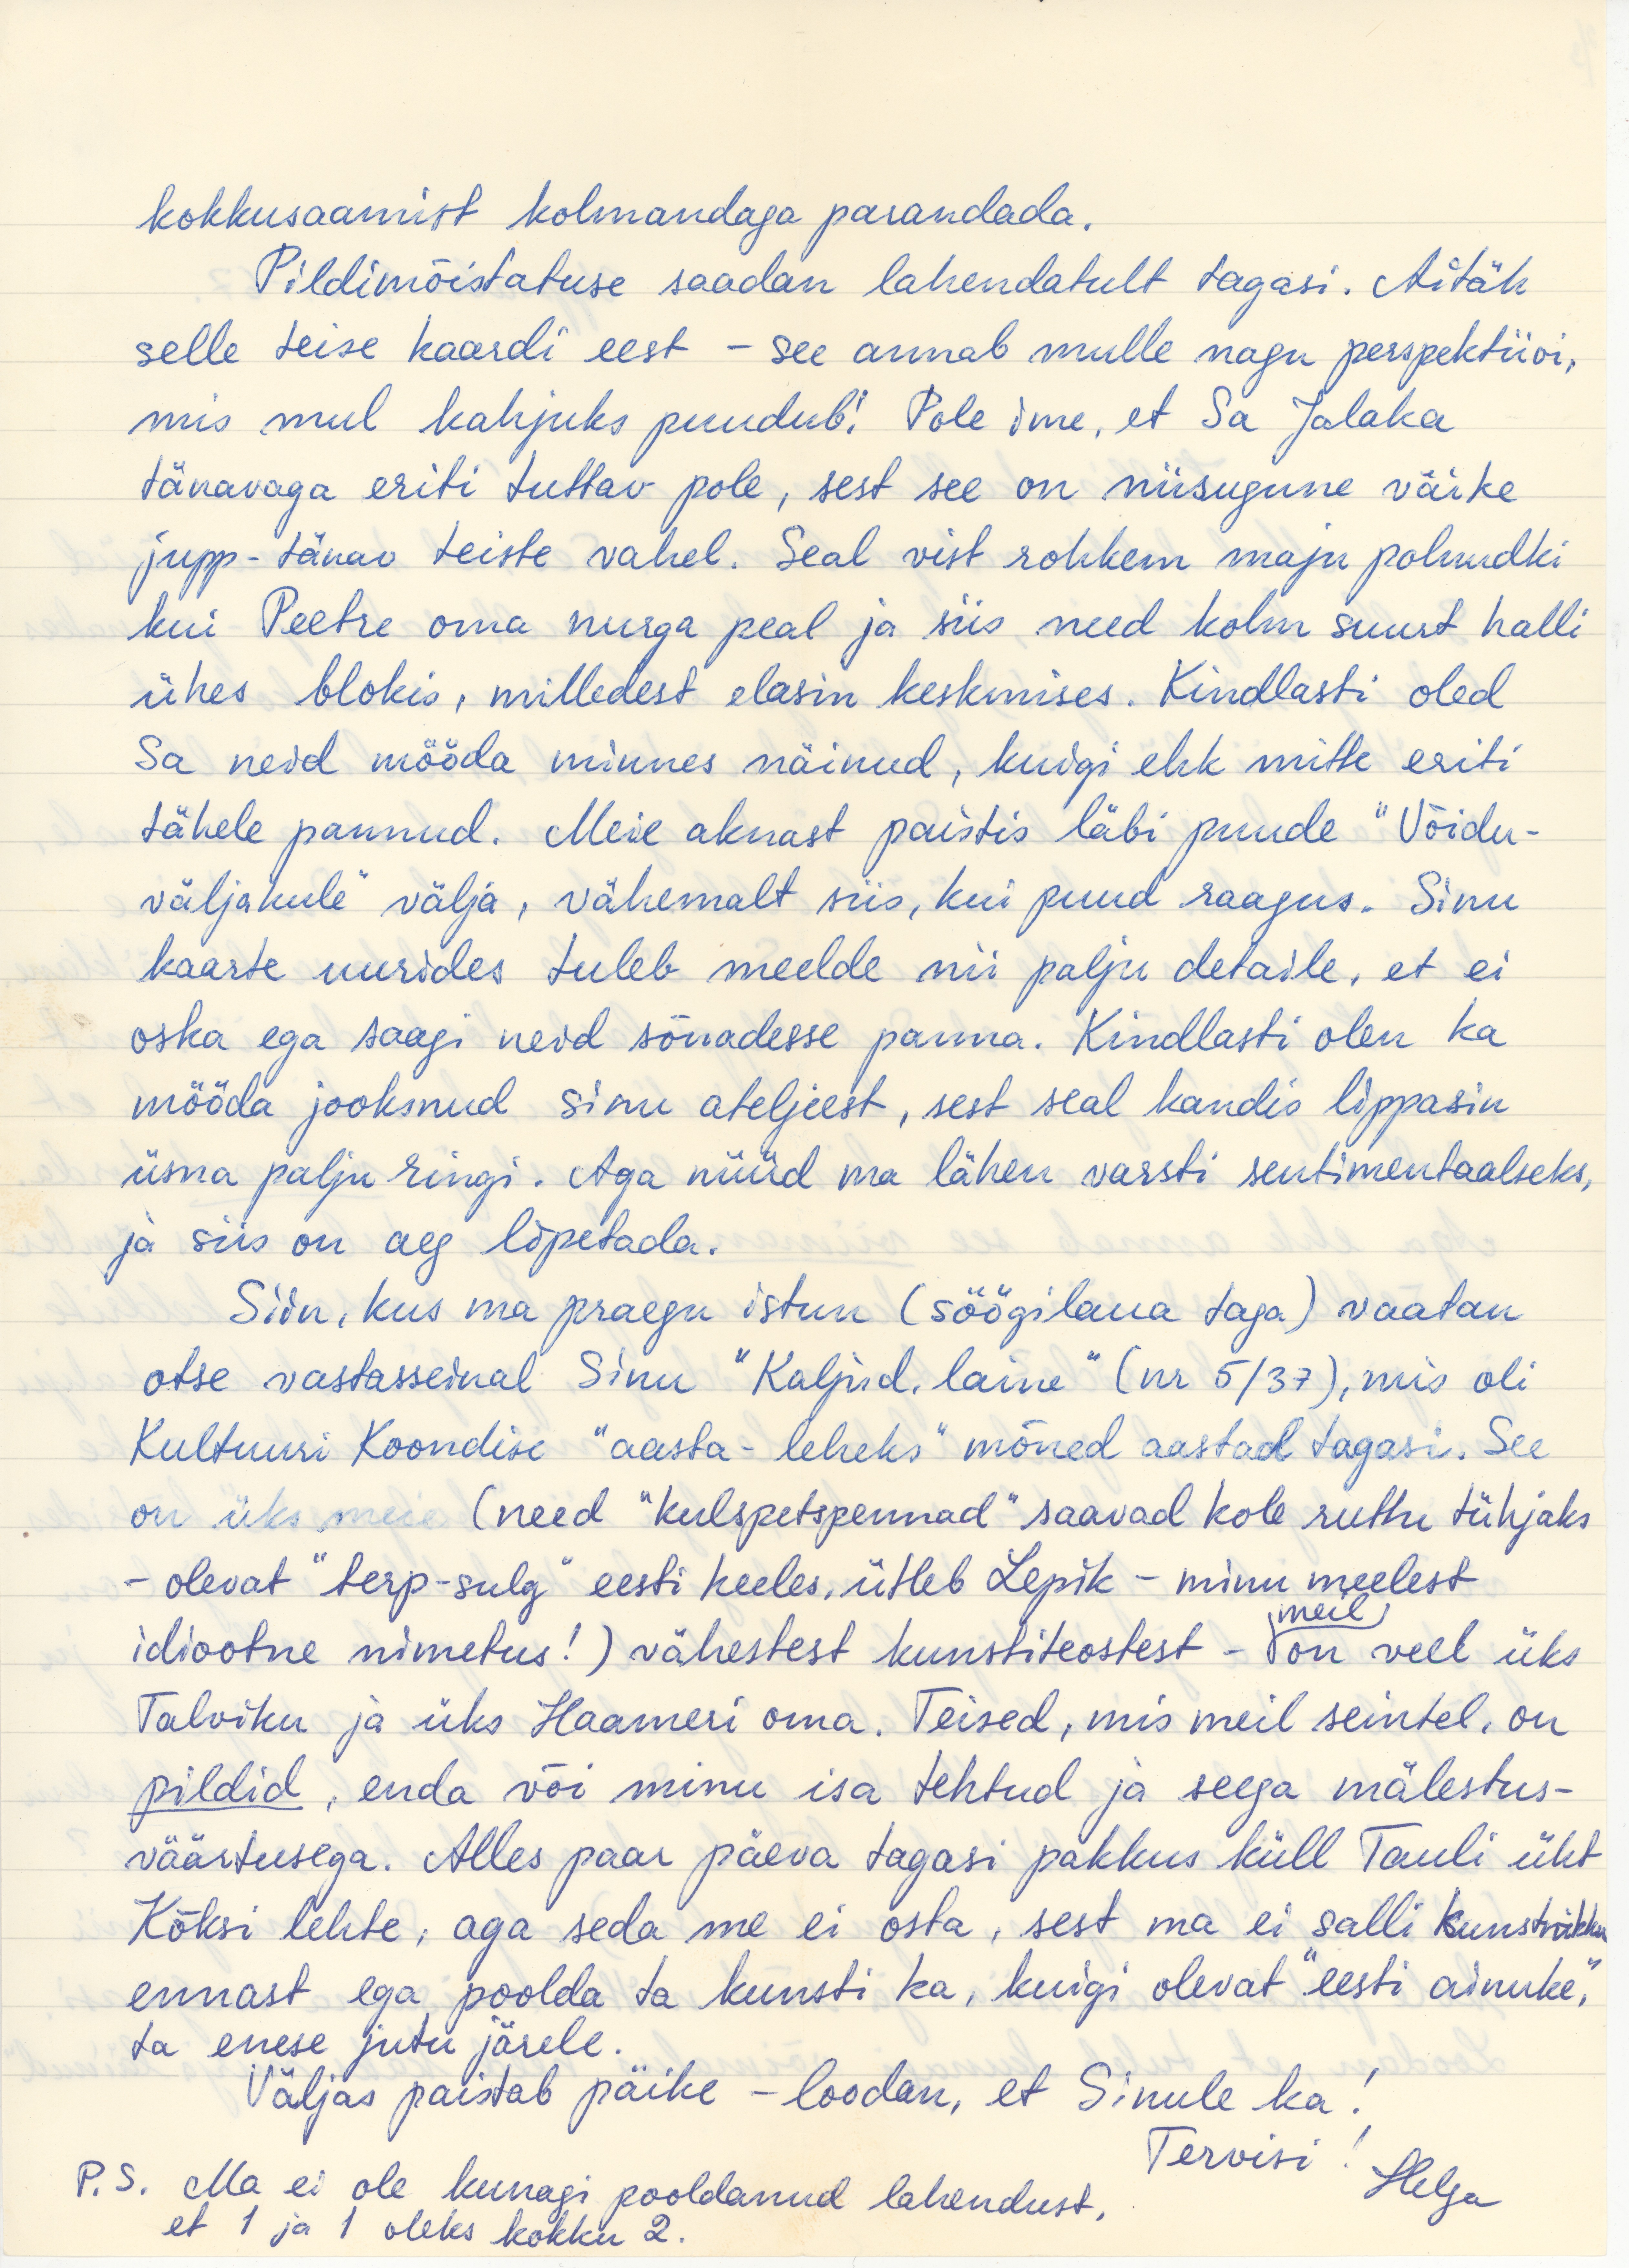 kokkusaamist kolmandaga parandada.
Pildimõistatuse saadan lahendatult tagasi. Aitäh
selle teise kaardi eest – see annab mulle nagu perspektiivi,
mis mul kahjuks puudub! Pole ime, et Sa Jalaka
tänavaga eriti tuttav pole, sest see on niisugune väike
jupp-tänav teiste vahel. Seal vist rohkem maju polnudki
kui Peetre oma nurga peal ja siis need kolm suurt halli
ühes blokis, milledest elasin keskmises. Kindlasti oled
Sa neid mööda minnes näinud, kuigi ehk mitte eriti
tähele pannud. Meie aknast paistis läbi puude "Võidu-
väljakule" välja, vähemalt siis, kui puud raagus. Sinu
kaarte uurides tuleb meelde nii palju detaile, et ei
oska ega saagi neid sõnadesse panna. Kindlasti olen ka
mööda jooksnud sinu ateljeest, sest seal kandis lippasin
üsna palju ringi. Aga nüüd ma lähen varsti sentimentaalseks,
ja siis on aeg lõpetada.
Siin, kus ma praegu istun (söögilaua taga) vaatan
otse vastasseinal Sinu "Kaljud, laine" (nr 5/37), mis oli
Kultuuri Koondise "aasta-leheks" mõned aastad tagasi. See
on üks meie (need "kulspetspennad" saavad kole ruttu tühjaks
– olevat "terp-sulg" eesti keeles, ütleb Lepik – minu meelest
idiootne nimetus!) vähestest kunstiteostest – meil on veel üks
Talviku ja üks Haameri oma. Teised, mis meil seintel, on
pildid, enda või minu isa tehtud ja seega mälestus-
väärtusega. Alles paar päeva tagasi pakkus küll Tauli üht
Kõksi lehte, aga seda me ei osta, sest ma ei salli kunstnikku
ennast ega poolda ta kunsti ka, kuigi olevat "eesti ainuke",
ta enese jutu järele.
Väljas paistab päike – loodan, et Sinule ka!
Tervisi!
Helga
P.S. Ma ei ole kunagi pooldanud lahendust,
et 1 ja 1 oleks kokku 2.